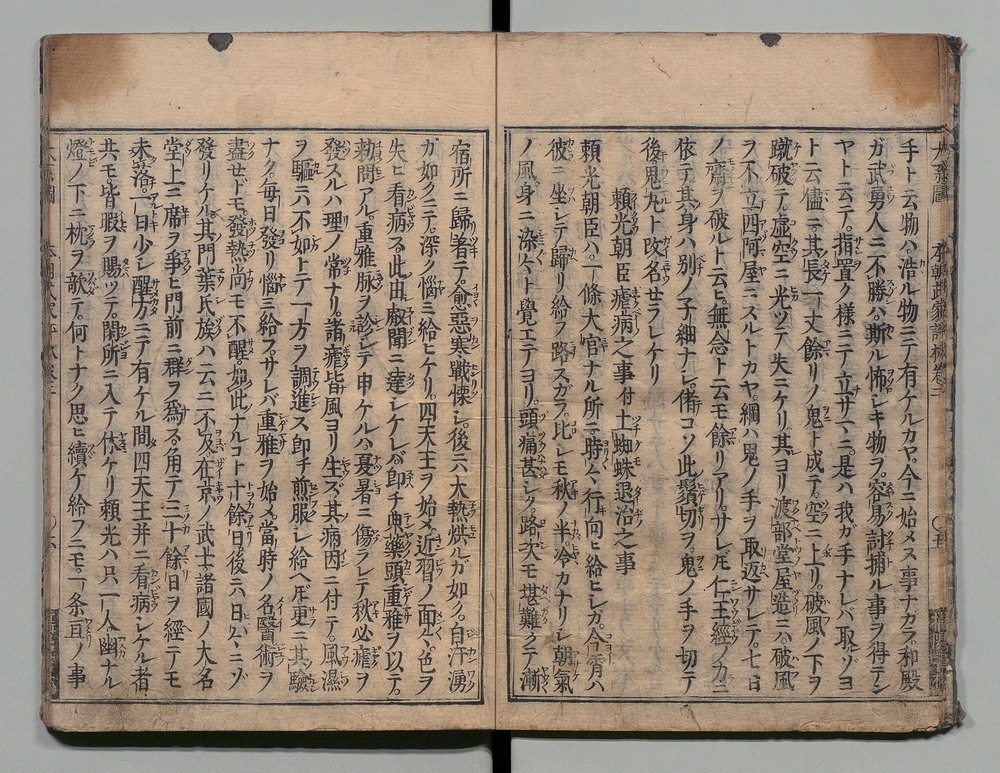 手ト云物ハ浩ル物ニテ有ケルカヤ。今ニ始メヌ事ナカラ。和殿
ガ武勇人ニ不勝ハ。斯ル怖シキ物ヲ。容易討捕ル事ヲ得テン
ヤト云テ。指置ク様ニテ立サマニ。是ハ我ガ手ナレバ取ゾヨ
ト云儘ニ。其長一丈餘リノ鬼ト成テ。空ニ上リ。破風ノ下ヲ
蹴破テ。虚空ニ光ツテ失ニケリ。其ヨリ渡部堂屋造ニハ。破風
ヲ不立。四阿屋ニスルトカヤ。綱ハ鬼ノ手ヲ取返サレテ。七日
ノ齋ヲ破ルト云ヒ。無念ト云モ餘リアリ。サレ𪜈仁王經ノ力ニ
依テ其身ハ別ノ子細ナシ。偖コソ此鬚切ヲ。鬼ノ手ヲ切テ
後鬼丸ト改名セラレケリ
頼光朝臣瘧病之事付土蜘蛛退治之事
頼光朝臣ハ。一條大宮ナル所ニ時々行向ヒ給ヒシガ。今宵ハ
彼ニ坐シテ歸リ給フ路スガラ。比シモ秋ノ半。冷カナリシ朝氣
ノ風身ニ染々ト覺エテヨリ。頭痛甚シク。路次モ堪難クテ漸
宿所ニ歸著テ。愈惡寒戰慄シ。後ニハ大熱烘ルガ如ク。自汗湧
ガ如クニテ。深ク惱ミ給ヒケリ。四天王ヲ始メ。近習ノ面々色ヲ
失ヒ看病ス。此由叡聞ニ達シケレバ。即チ典藥頭重雅ヲ以テ。
勅問アル。重雅脉ヲ診シテ申ケルハ。夏暑ニ傷ラレテ秋必瘧ヲ
發スルハ理ノ常ナリ。諸瘧皆風ヨリ生ズ。其病因ニ付テ。風濕
ヲ驅ニハ不如トテ。一方ヲ調進ス。即チ煎服シ給ヘ𪜈更ニ其驗
ナク。毎日發リ惱ミ給フ。サレバ重雅ヲ始メ當時ノ名醫術ヲ
盡セドモ。發熱尚モ不醒。如此ナルコト十餘日後ニハ日々ニゾ
發リケル。其門葉氏族ハ云ニ不及。在京ノ武士諸國ノ大名
堂上ニ席ヲ爭ヒ門前ニ群ヲ爲ス。角テ三十餘日ヲ經テモ
未落。一日少シ醒方ニテ有ケル間。四天王并ニ看病シケル者
共モ皆暇ヲ賜ツテ。閑所ニ入テ休ケリ。頼光ハ只一人幽ナル
燈ノ下ニ枕ヲ欹テ。何トナク思ヒ續ケ給フニモ。一条亘ノ事